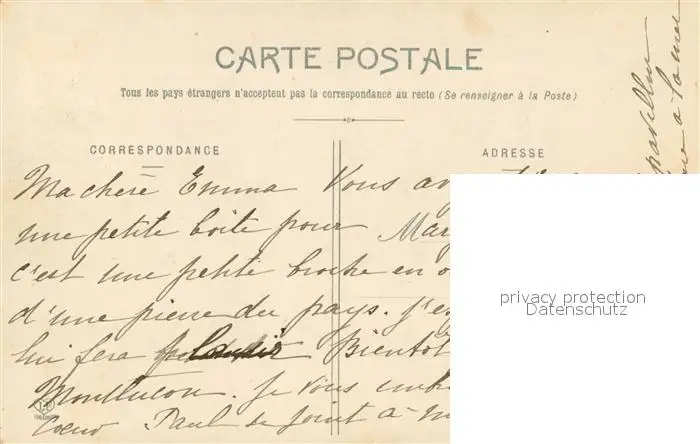 CARTE POSTALE
Tous les pays étrangers n'acceptent pas la correspondance au recto (Se renseigner à la Poste)
CORRESPONDANCE
ADRESSE
Ma chère Emma Vous av
une petite boite pour Mar
c'est une petite broche en o
d'une pierre du pays. j'es
lui fera plaisir Bientot
Montlucon. Je vous embr
Coeur Paul se joint à m
privacy protection
Datenschutz